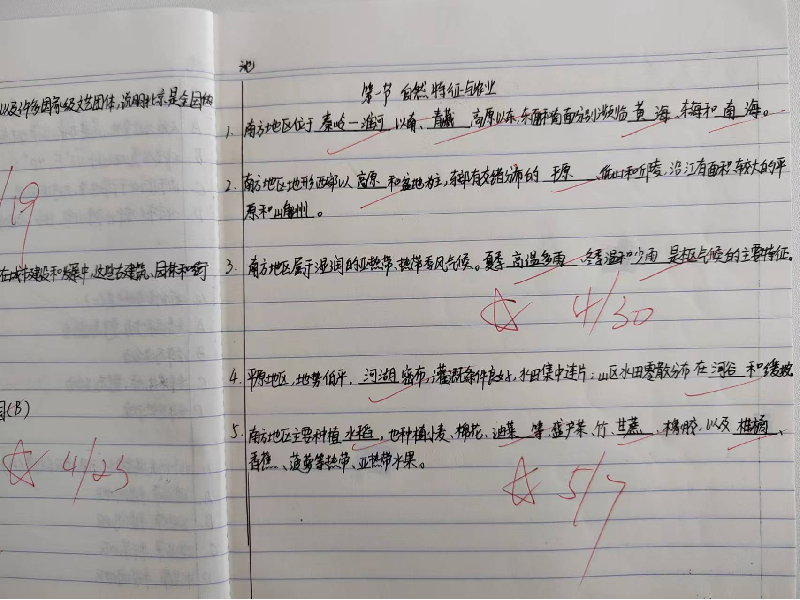 以及许多国家级文艺团体,说明北京是全国的
/19
在城市建设和发展中,这些古建筑、园林和
(B)
☆ 4/25
池
第一节 自然特征与农业
1. 南方地区位于 秦岭—淮河 以南、青藏 高原以东,东面和南面分别濒临 黄 海、东海和 南 海。
2. 南方地区地形西部以 高原 和盆地为主,东部有交错分布的 平原 、低山和丘陵,沿江有面积较大的平
原和三角洲。
3. 南方地区属于湿润的亚热带、热带季风气候。夏季 高温多雨 冬季温和少雨 是气候的主要特征。
☆ 4/30
4. 平原地区,地势低平,河湖密布,灌溉条件良好,水田集中连片;山区水田零散分布在河谷 和缓坡
5. 南方地区主要种植 水稻 ,也种植小麦、棉花、油菜 等,盛产茶、竹、甘蔗 、橡胶,以及 柑橘 、
香蕉、菠萝等热带、亚热带水果。
☆ 5/7